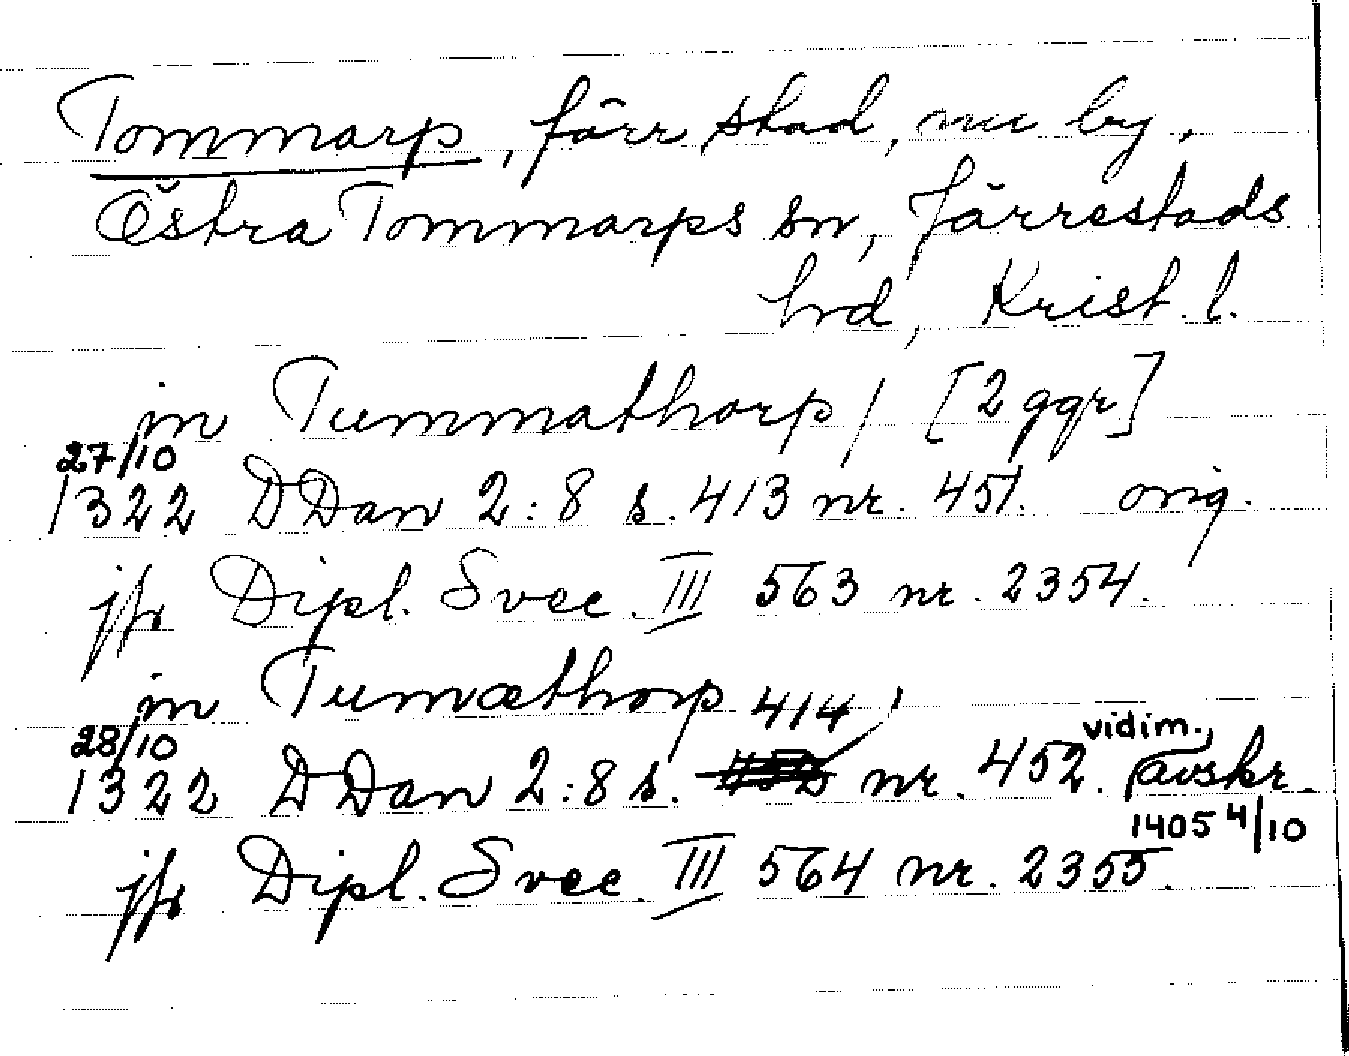 Tommarp, förr stad, nu by,
Östra Tommarps sn, Järrestads
hd, Krist. l.
in Tummathorp / [2 ggr]
27/10
1322 DDan 2:8 s. 413 nr. 451. orig.
jfr Dipl. Svec. III 563 nr. 2354.
in Tumæthorp 414
28/10 vidim.,
1322 DDan 2:8 s. nr. 452. avskr.
1405 4/10
jfr Dipl. Svec. III 564 nr. 2355.